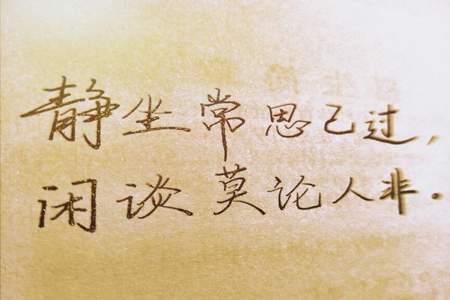 静坐常思己过，
闲谈莫论人非.